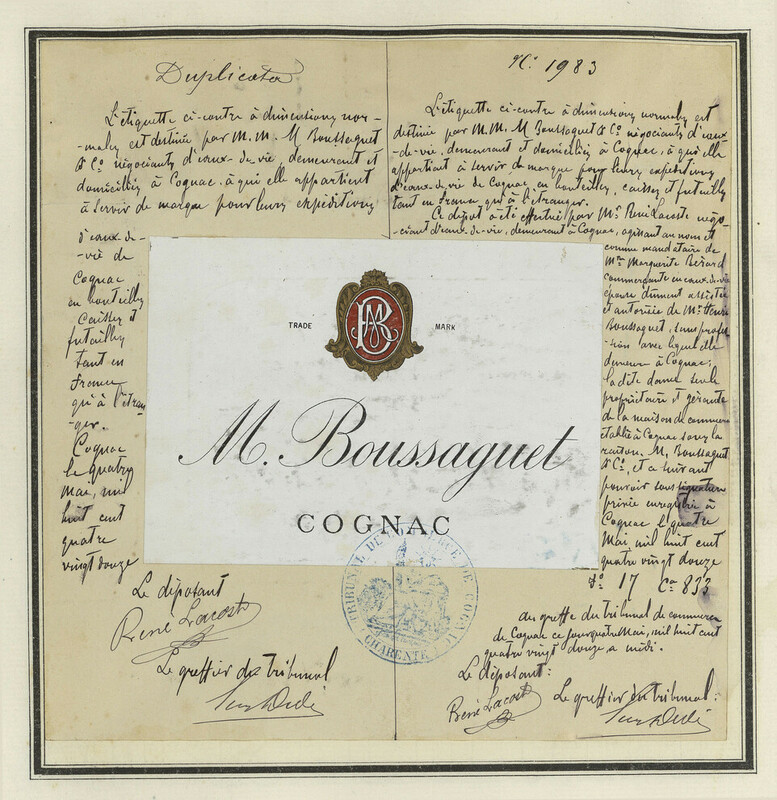 Duplicata
L'étiquette ci-contre à dimensions nor-
-males est destinée par M.M. M Boussaguet
& Co négociants d'eaux-de-vie, demeurant et
domiciliés à Cognac, à qui elle appartient
à servir de marque pour leurs expéditions
d'eaux-de-
-vie de
Cognac
en bouteilles
caisses et
futailles
tant en
France
qu'à l'étran-
-ger.
Cognac
le quatre
Mai, mil
huit cent
quatre
vingt douze
Le déposant
René Lacoste
Le greffier du tribunal
No 1983
L'étiquette ci-contre à dimensions normales est
destinée par M.M. M Boussaguet & Co négociants d'eaux-
-de-vie, demeurant et domiciliés à Cognac, à qui elle
appartient à servir de marque pour leurs expéditions
d'eaux-de-vie de Cognac, en bouteilles, caisses et futailles
tant en France qu'à l'étranger.
Ce dépôt a été effectué par Mr René Lacoste négo-
-ciant d'eaux-de-vie, demeurant à Cognac, agissant au nom et
comme mandataire de
Mme Marguerite Bérard
commerçante en eaux-de-vie
épouse dûment assistée
et autorisée de Mr Henri
Boussaguet, sans profes-
-sion avec lequel elle
demeure à Cognac;
la dite dame seule
propriétaire et gérante
de la maison de commerce
établie à Cognac sous la
raison M. Boussaguet
& Co, et a suivant
pouvoir sous signature
privée enregistré à
Cognac le quatre
Mai mil huit cent
quatre vingt douze
Fo 17 Ce 833
au greffe du tribunal de commerce
de Cognac ce jour quatre Mai, mil huit cent
quatre vingt douze, à midi.
Le déposant:
René Lacoste
Le greffier du tribunal:
TRADE MARK
MB
M. Boussaguet
COGNAC
TRIBUNAL DE COMMERCE DE COGNAC
CHARENTE